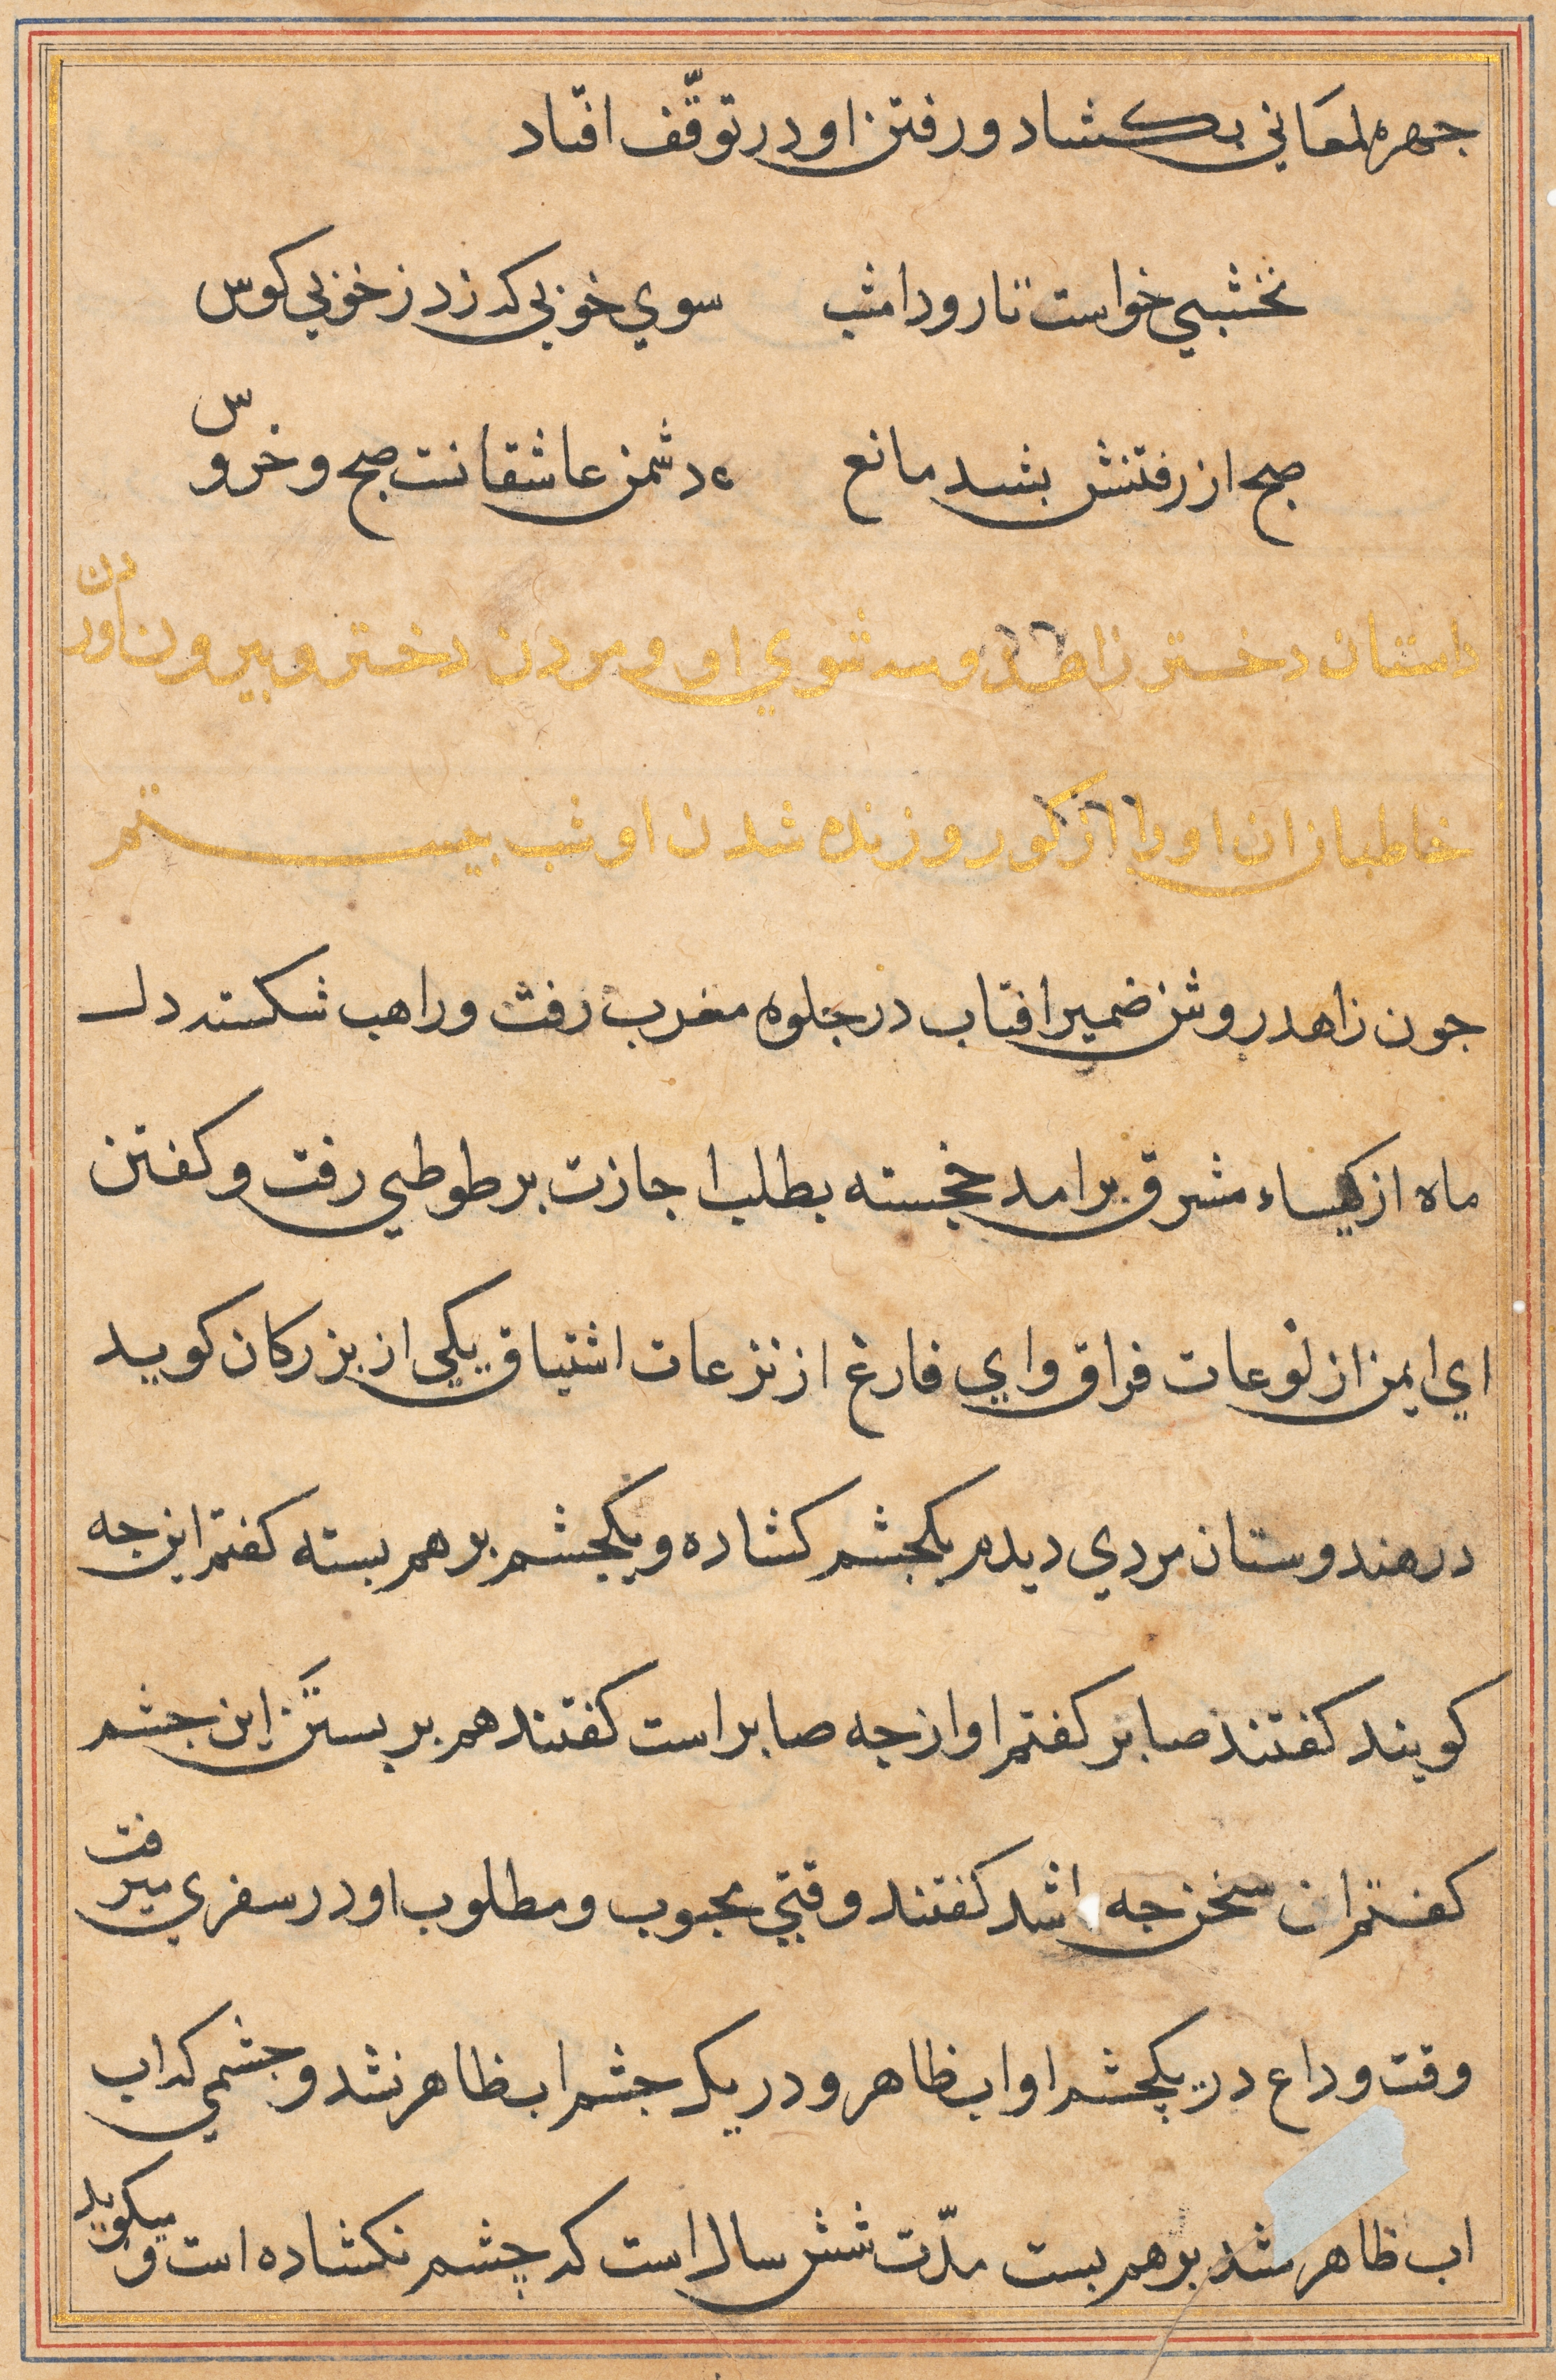 جهره لمعاني بكشاد و رفتن او در توقّف افتاد
نخشبي خواست تا رود امشب سوي خوبي كه زد ز خوبي كوس
صبح از رفتنش بشد مانع دشمن عاشقانست صبح و خروس
داستان دختر زاهد و سه شوي او و مردن دختر و بيرون آوردن
خاطبان ان او را از كور و زنده شدن او شب بيستم
جون زاهد روشن ضمير افتاب در جلوه مغرب رفت و راهب شكسته دل
ماه از كيساء مشرق برامد خجسته بطلب اجازت بر طوطي رفت و كفتن
اي ايمن از لوعات فراق و اي فارغ از نزعات اشتياق يكي از بزركان كويد
در هندوستان مردي ديدم يكجشم كشاده و يكجشم بر هم بسته كفتم اين جه
كويند كفتند صابر كفتم او از جه صابر است كفتند هم بر بستن اين جشم
كفتم ان سخن جه اشد كفتند وقتي محبوب و مطلوب او در سفري ميرفت
وقت وداع در يكچشم او اب ظاهر و در يك جشم اب ظاهر نشد و جشمي كه اب
اب ظاهر نشد بر هم بست مدّت شش سال است كه چشم نكشاده است و ميكويد